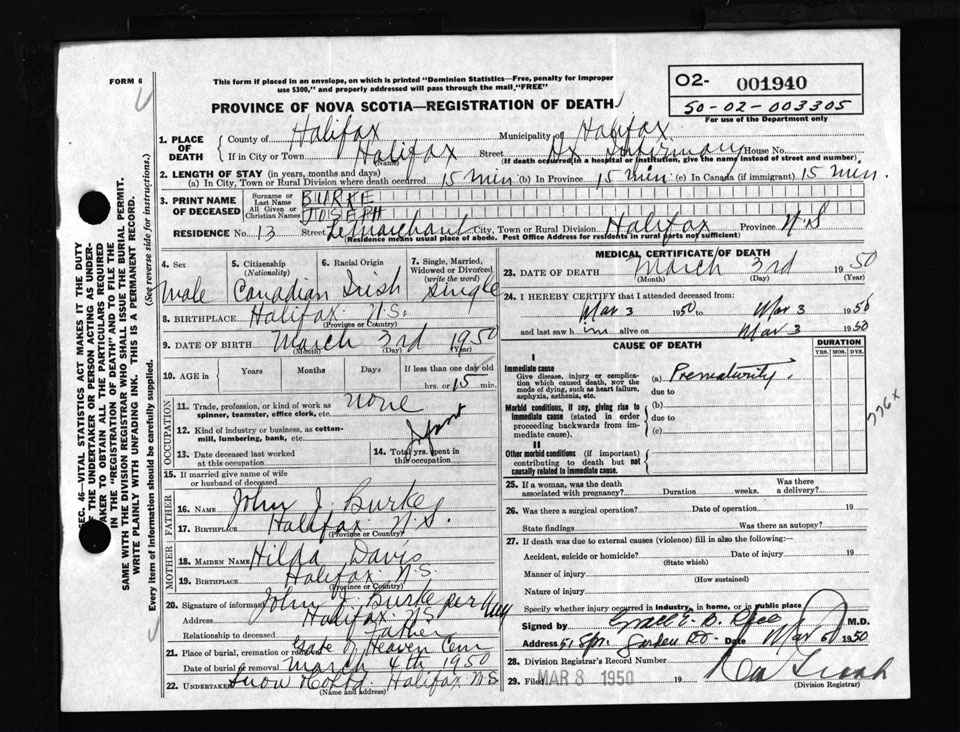 FORM 6
This form if placed in an envelope, on which is printed "Dominion Statistics—Free, penalty for improper
use $300," and properly addressed will pass through the mail, "FREE"
O2- 001940
50-02-003305
For use of the Department only
PROVINCE OF NOVA SCOTIA—REGISTRATION OF DEATH
1. PLACE OF DEATH County of Halifax Municipality of Halifax
If in City or Town Halifax (Name) Street Hx Infirmary House No.
(If death occurred in a hospital or institution, give the name instead of street and number)
2. LENGTH OF STAY (in years, months and days)
(a) In City, Town or Rural Division where death occurred 15 min (b) In Province 15 min (c) In Canada (if immigrant) 15 min.
3. PRINT NAME OF DECEASED Surname or Last Name BURKE
All Given or Christian Names JOSEPH
RESIDENCE No. 13 Street LeMarchant City, Town or Rural Division Halifax Province N.S
(Residence means usual place of abode. Post Office Address for residents in rural parts not sufficient)
4. Sex male
5. Citizenship (Nationality) Canadian
6. Racial Origin Irish
7. Single, Married, Widowed or Divorced (write the word) Single
8. BIRTHPLACE Halifax N.S.
(Province or Country)
9. DATE OF BIRTH March 3rd 1950
(Month) (Day) (Year)
10. AGE in Years Months Days If less than one day old
hrs. or 15 min.
OCCUPATION
11. Trade, profession, or kind of work as spinner, teamster, office clerk, etc. none
12. Kind of industry or business, as cotton-mill, lumbering, bank, etc.
13. Date deceased last worked at this occupation
14. Total yrs. spent in this occupation Infant
15. If married give name of wife or husband of deceased
FATHER
16. NAME John J. Burke
17. BIRTHPLACE Halifax N.S.
(Province or Country)
MOTHER
18. MAIDEN NAME Hilda Davis
19. BIRTHPLACE Halifax N.S.
(Province or Country)
20. Signature of informant John J. Burke per
Address Halifax NS
Relationship to deceased Father
21. Place of burial, cremation or removal Gate of Heaven Cem
Date of burial or removal March 4th 1950
22. Undertaker Snow & Co Ltd. Halifax N.S.
(Name and address)
MEDICAL CERTIFICATE OF DEATH
23. DATE OF DEATH March 3rd 1950
(Month) (Day) (Year)
24. I HEREBY CERTIFY that I attended deceased from:
Mar 3 1950 to Mar 3 1950
and last saw him alive on Mar 3 1950
CAUSE OF DEATH DURATION
YRS. MOS. DYS.
I
Immediate cause
Give disease, injury or complication which caused death, NOT the mode of dying, such as heart failure, asphyxia, asthenia, etc.
(a) Prematurity.
due to
Morbid conditions, if any, giving rise to immediate cause (stated in order proceeding backwards from immediate cause).
(b)
due to
(c)
II
Other morbid conditions (if important) contributing to death but not causally related to immediate cause.
776x
25. If a woman, was the death associated with pregnancy? Duration weeks. Was there a delivery?
26. Was there a surgical operation? Date of operation 19
State findings Was there an autopsy?
27. If death was due to external causes (violence) fill in also the following:—
Accident, suicide or homicide? Date of injury 19
(State which)
Manner of injury
(How sustained)
Nature of injury
Specify whether injury occurred in industry, in home, or in public place
Signed by Grace E. B. Rice M.D.
Address 51 Spr. Garden Rd Date Mar 6 1950
28. Division Registrar's Record Number
29. Filed MAR 8 1950 19
(Division Registrar)
SEC. 46—VITAL STATISTICS ACT MAKES IT THE DUTY
OF THE UNDERTAKER OR PERSON ACTING AS UNDER-
TAKER TO OBTAIN ALL THE PARTICULARS REQUIRED
IN THE "REGISTRATION OF DEATH" AND TO FILE THE
SAME WITH THE DIVISION REGISTRAR WHO SHALL ISSUE THE BURIAL PERMIT.
WRITE PLAINLY WITH UNFADING INK. THIS IS A PERMANENT RECORD.
Every item of information should be carefully supplied. (See reverse side for instructions.)